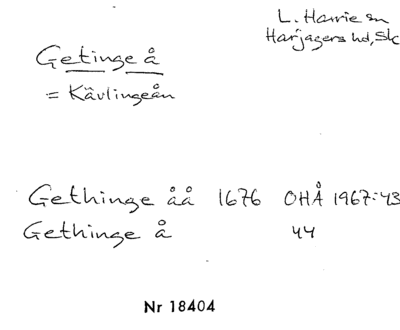 L. Harrie sn
Harjagers hd, Sk
Getinge å
= Kävlingeån
Gethinge åå 1676 OHÅ 1967:43
Gethinge å 44
Nr 18404